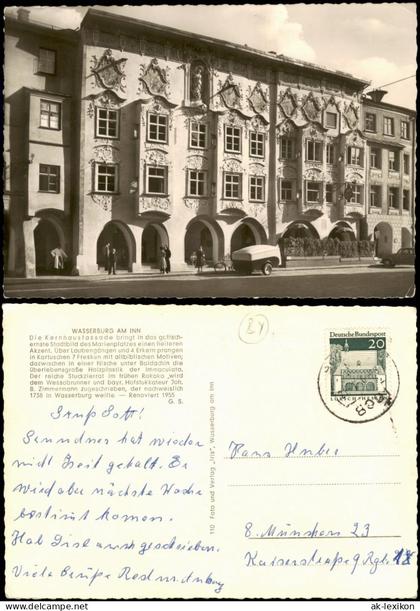 WASSERBURG AM INN
Die Kernhausfassade bringt in das gotisch-
ernste Stadtbild des Marienplatzes einen heiteren
Akzent. Über Laubengängen und 4 Erkern prangen
in Kartuschen 7 Fresken mit altbiblischen Motiven,
dazwischen in einer Nische unter Baldachin die
überlebensgroße Holzplastik der Immaculata.
Der reiche Stuckzierat im frühen Rokoko wird
dem Wessobrunner und bayr. Hofstukkateur Joh.
B. Zimmermann zugeschrieben, der nachweislich
1738 in Wasserburg weilte — Renoviert 1955
G. S.
Grüß Gott!
hat wieder
nicht Zeit gehabt. Er
wird aber nächste Woche
bestimmt kommen.
Hab auch geschrieben.
Viele Grüße
110 Foto und Verlag „Iris", Wasserburg am Inn
Deutsche Bundespost
20
LORSCH/HESSEN
Hans Huber
8 München 23
Kaiserstraße 9 Rgb.
ak-lexikon
© ak-lexikon.com